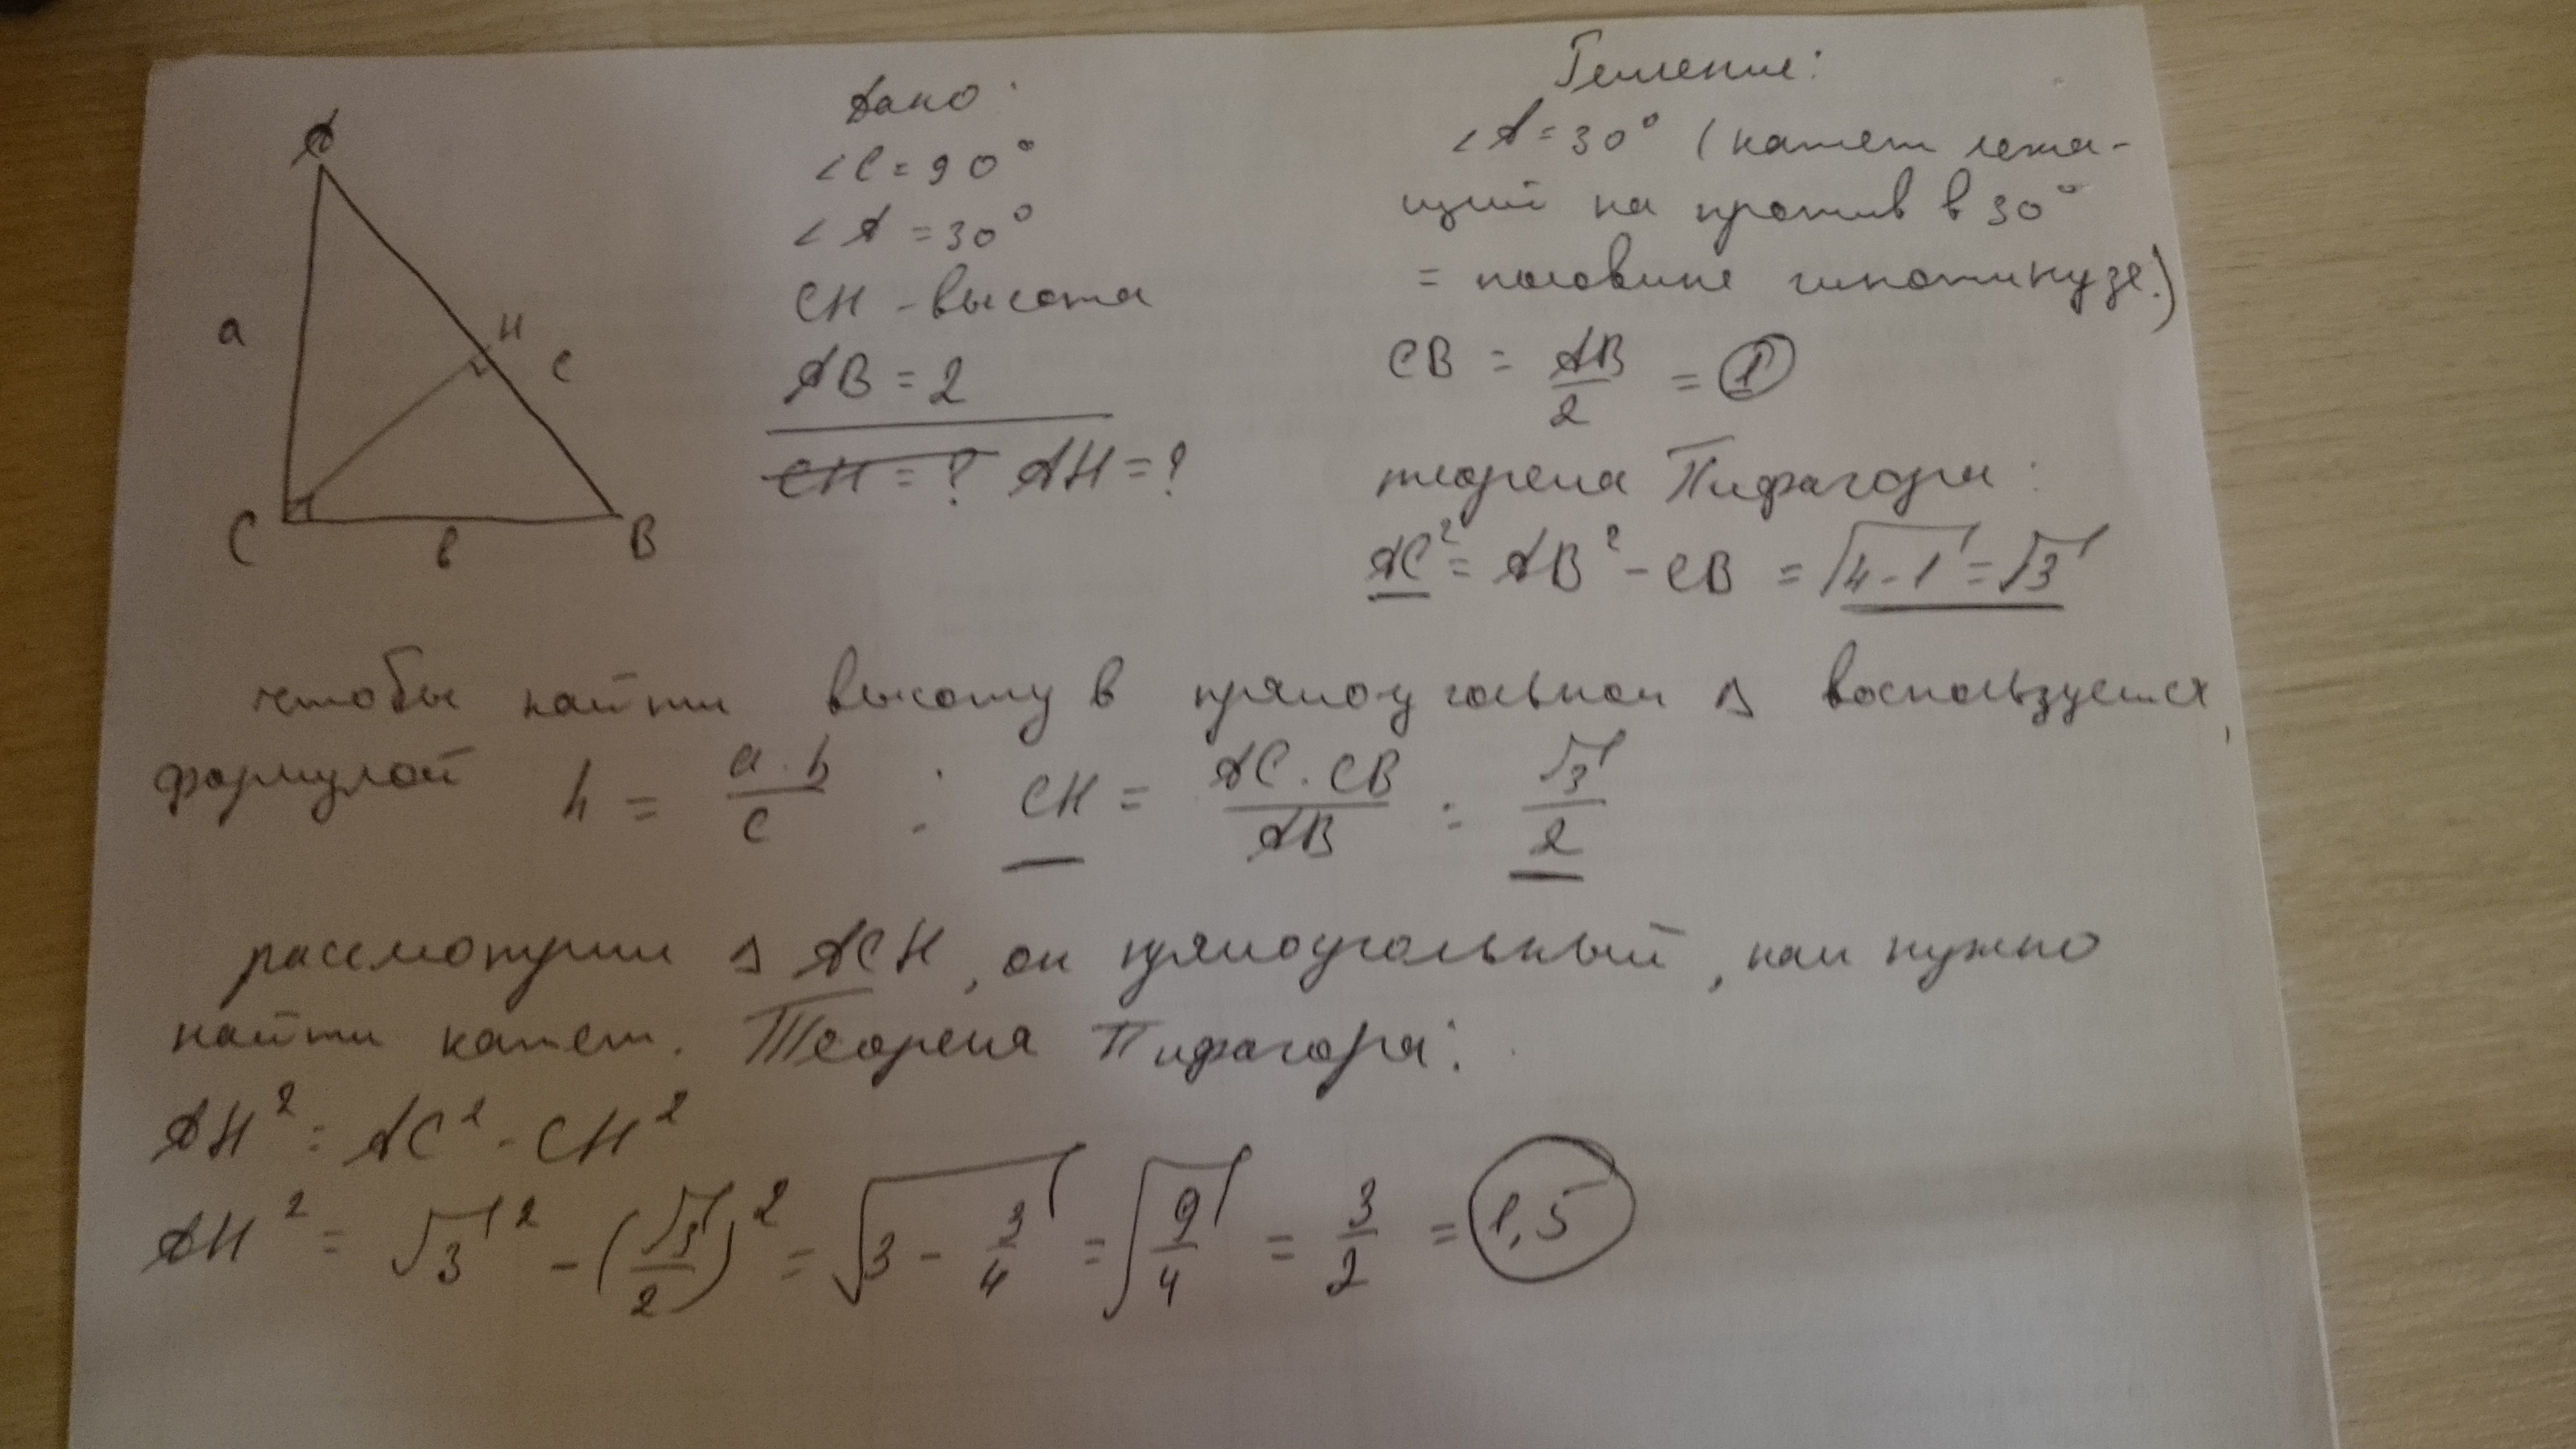 A
a
H
c
C
в
B
Дано:
∠C = 90°
∠A = 30°
CH - высота
AB = 2
CH = ? AH = ?
Решение:
∠A = 30° (катет лежа-
щий на против в 30°
= половине гипотинузе.)
CB = AB/2 = 1
теорема Пифагора:
AC² = AB² - CB = √4-1 = √3
чтобы найти высоту в прямоугольном Δ воспользуемся
формулой h = a·b/c : CH = AC·CB/AB = √3/2
рассмотрим Δ ACH, он прямоугольный, нам нужно
найти катет. Теорема Пифагора:
AH² = AC² - CH²
AH² = √3² - (√3/2)² = √3 - 3/4 = √9/4 = 3/2 = 1,5